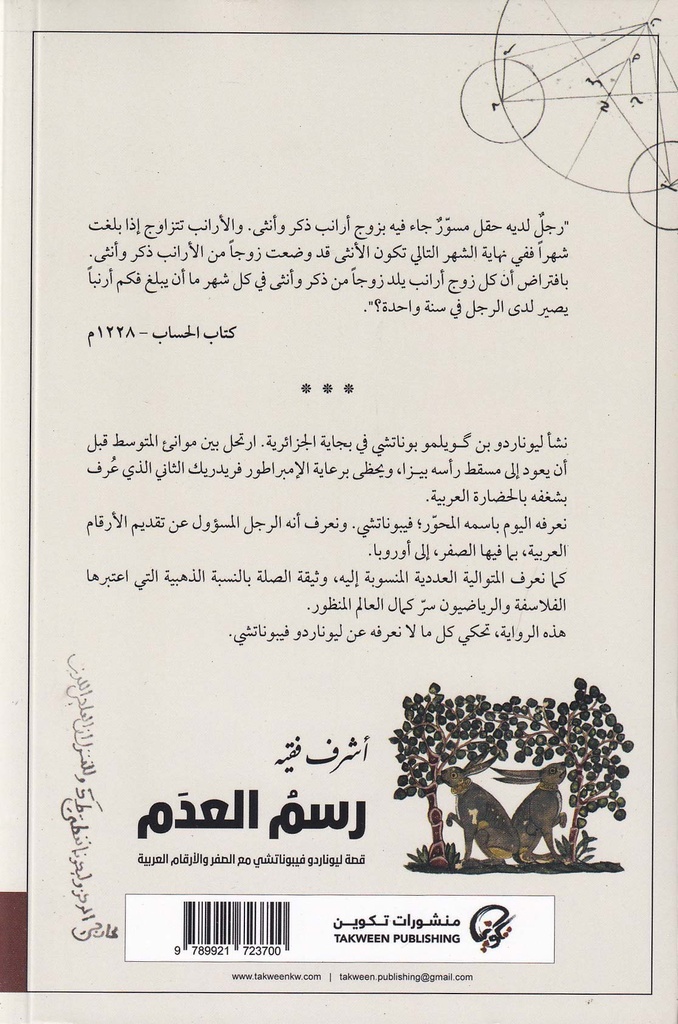 "رجلٌ لديه حقل مسوّرٌ جاء فيه بزوج أرانب ذكر وأنثى. والأرانب تتزاوج إذا بلغت
شهراً ففي نهاية الشهر التالي تكون الأنثى قد وضعت زوجاً من الأرانب ذكر وأنثى.
بافتراض أن كل زوج أرانب يلد زوجاً من ذكر وأنثى في كل شهر ما أن يبلغ فكم أرنباً
يصير لدى الرجل في سنة واحدة؟".
كتاب الحساب – ١٢٢٨م
* * *
نشأ ليوناردو بن گويلمو بوناتشي في بجاية الجزائرية. ارتحل بين موانئ المتوسط قبل
أن يعود إلى مسقط رأسه بيـزا، ويحظى برعاية الإمبراطور فريدريك الثاني الذي عُرف
بشغفه بالحضارة العربية.
نعرفه اليوم باسمه المحوّر؛ فيبوناتشي. ونعرف أنه الرجل المسؤول عن تقديم الأرقام
العربية، بما فيها الصفر، إلى أوروبا.
كما نعرف المتوالية العددية المنسوبة إليه، وثيقة الصلة بالنسبة الذهبية التي اعتبرها
الفلاسفة والرياضيون سرّ كمال العالم المنظور.
هذه الرواية، تحكي كل ما لا نعرفه عن ليوناردو فيبوناتشي.
أشرف فقيه
رسمُ العدَم
قصة ليوناردو فيبوناتشي مع الصفر والأرقام العربية
منشورات تكوين
TAKWEEN PUBLISHING
تكوين
9 789921 723700
www.takweenkw.com | takween.publishing@gmail.com